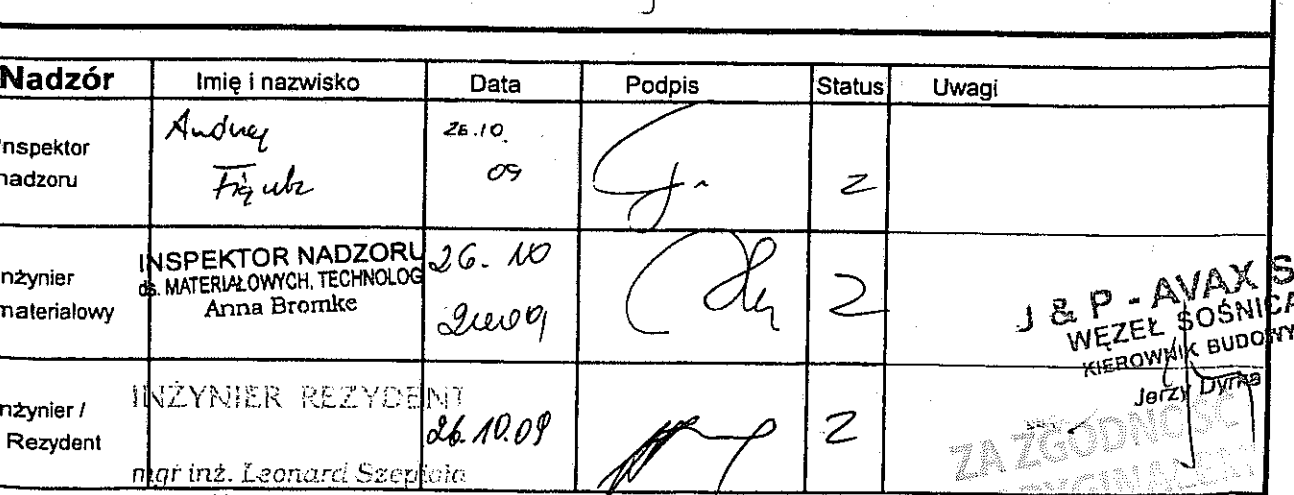 Nadzór Imię i nazwisko Data Podpis Status Uwagi
Inspektor nadzoru
26.10. 09
2
Inżynier materialowy
INSPEKTOR NADZORU
ds. MATERIAŁOWYCH, TECHNOLOG
Anna Bromke
26. 10
2
Inżynier / Rezydent
INŻYNIER REZYDENT
mgr inż. Leonard
26.10.09
2
J & P - AVAX S
WĘZEŁ SOŚNICA
KIEROWNIK BUDOWY
Jerzy Dyrka
ZA ZGODNOŚĆ